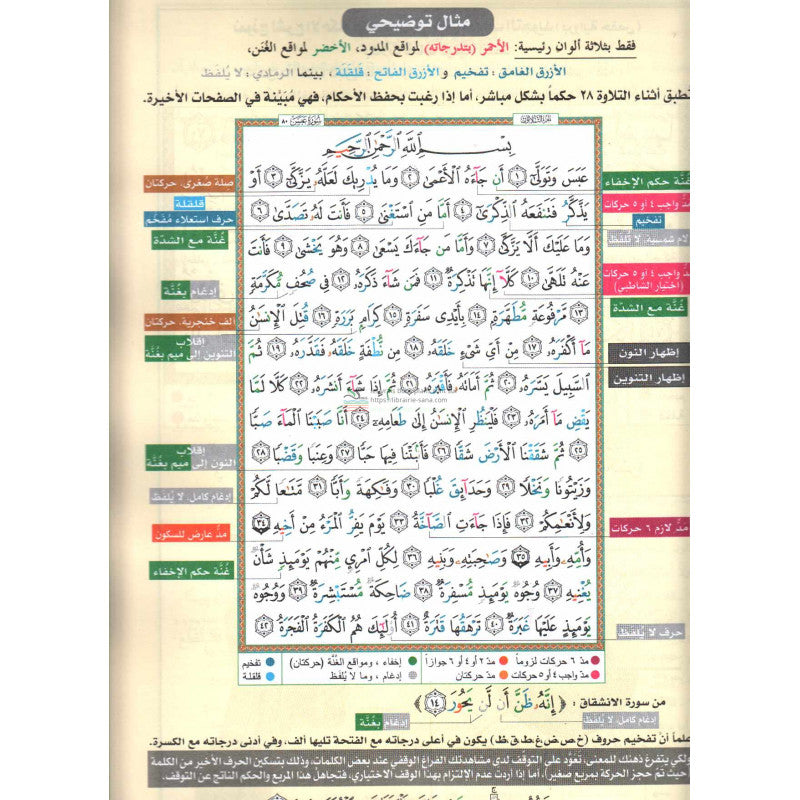 مثال توضيحي
فقط بثلاثة ألوان رئيسية: الأحمر (بتدرجاته) لمواقع المدود، الأخضر لمواقع الغُنَن،
الأزرق الغامق: تفخيم و الأزرق الفاتح: قلقلة، بينما الرمادي: لا يُلفَظ
تطبق أثناء التلاوة ٢٨ حكماً بشكل مباشر، أما إذا رغبت بحفظ الأحكام، فهي مُبَيَّنة في الصفحات الأخيرة.
سورة عبس ٨٠
بِسْمِ اللَّهِ الرَّحْمَٰنِ الرَّحِيمِ
عَبَسَ وَتَوَلَّىٰٓ ١ أَن جَآءَهُ ٱلْأَعْمَىٰ ٢ وَمَا يُدْرِيكَ لَعَلَّهُۥ يَزَّكَّىٰٓ ٣ أَوْ
يَذَّكَّرُ فَتَنفَعَهُ ٱلذِّكْرَىٰٓ ٤ أَمَّا مَنِ ٱسْتَغْنَىٰ ٥ فَأَنتَ لَهُۥ تَصَدَّىٰ ٦
وَمَا عَلَيْكَ أَلَّا يَزَّكَّىٰ ٧ وَأَمَّا مَن جَآءَكَ يَسْعَىٰ ٨ وَهُوَ يَخْشَىٰ ٩ فَأَنتَ
عَنْهُ تَلَهَّىٰ ١٠ كَلَّآ إِنَّهَا تَذْكِرَةٌ ١١ فَمَن شَآءَ ذَكَرَهُۥ ١٢ فِى صُحُفٍ مُّكَرَّمَةٍ
١٣ مَّرْفُوعَةٍ مُّطَهَّرَةٍۭ ١٤ بِأَيْدِى سَفَرَةٍ ١٥ كِرَامٍۭ بَرَرَةٍ ١٦ قُتِلَ ٱلْإِنسَٰنُ
مَآ أَكْفَرَهُۥ ١٧ مِنْ أَىِّ شَىْءٍ خَلَقَهُۥ ١٨ مِن نُّطْفَةٍ خَلَقَهُۥ فَقَدَّرَهُۥ ١٩ ثُمَّ
ٱلسَّبِيلَ يَسَّرَهُۥ ٢٠ ثُمَّ أَمَاتَهُۥ فَأَقْبَرَهُۥ ٢١ ثُمَّ إِذَا شَآءَ أَنشَرَهُۥ ٢٢ كَلَّا لَمَّا
https://librairie-sana.com
يَقْضِ مَآ أَمَرَهُۥ ٢٣ فَلْيَنظُرِ ٱلْإِنسَٰنُ إِلَىٰ طَعَامِهِۦٓ ٢٤ أَنَّا صَبَبْنَا ٱلْمَآءَ صَبًّا
٢٥ ثُمَّ شَقَقْنَا ٱلْأَرْضَ شَقًّا ٢٦ فَأَنۢبَتْنَا فِيهَا حَبًّا ٢٧ وَعِنَبًا وَقَضْبًا ٢٨
وَزَيْتُونًا وَنَخْلًا ٢٩ وَحَدَآئِقَ غُلْبًا ٣٠ وَفَٰكِهَةً وَأَبًّا ٣١ مَّتَٰعًا لَّكُمْ
وَلِأَنْعَٰمِكُمْ ٣٢ فَإِذَا جَآءَتِ ٱلصَّآخَّةُ ٣٣ يَوْمَ يَفِرُّ ٱلْمَرْءُ مِنْ أَخِيهِ ٣٤
وَأُمِّهِۦ وَأَبِيهِ ٣٥ وَصَٰحِبَتِهِۦ وَبَنِيهِ ٣٦ لِكُلِّ ٱمْرِئٍ مِّنْهُمْ يَوْمَئِذٍ شَأْنٌ
يُغْنِيهِ ٣٧ وُجُوهٌ يَوْمَئِذٍ مُّسْفِرَةٌ ٣٨ ضَاحِكَةٌ مُّسْتَبْشِرَةٌ ٣٩ وَوُجُوهٌ
يَوْمَئِذٍ عَلَيْهَا غَبَرَةٌ ٤٠ تَرْهَقُهَا قَتَرَةٌ ٤١ أُو۟لَٰٓئِكَ هُمُ ٱلْكَفَرَةُ ٱلْفَجَرَةُ ٤٢
غُنَّة حكم الإخفاء
مدّ واجب ٤ أو ٥ حركات
تفخيم
لام شمسية، لا يُلفَظ
مدّ واجب ٤ أو ٥ حركات
(اختيار الشاطبي)
غُنَّة مع الشدّة
إظهار النون
إظهار التنوين
مدّ لازم ٦ حركات
حرف لا يُلفَظ
صلة صغرى، حركتان
قلقلة
حرف استعلاء مُفَخَّم
غُنَّة مع الشدّة
إدغام بغُنَّة
ألف خنجرية، حركتان
إقلاب
التنوين إلى ميم بغُنَّة
إقلاب
النون إلى ميم بغُنَّة
إدغام كامل، لا يُلفَظ
مدّ عارض للسكون
غُنَّة حكم الإخفاء
مدّ ٦ حركات لزوماً مدّ ٢ أو ٤ أو ٦ جوازاً إخفاء، ومواقع الغُنَّة (حركتان) تفخيم
مدّ واجب ٤ أو ٥ حركات مدّ حركتان إدغام، وما لا يُلفَظ قلقلة
من سورة الانشقاق: ﴿ إِنَّهُۥ ظَنَّ أَن لَّن يَحُورَ ١٤ ﴾
إدغام كامل، لا يُلفَظ
إدغام بغُنَّة
علماً أنّ تفخيم حروف (خ،ص،ض،غ،ط،ق،ظ) يكون في أعلى درجاته مع الفتحة تليها ألف، وفي أدنى درجاته مع الكسرة.
ولكي يتفرغ ذهنك للمعنى، تعوّد على التوقف لدى مشاهدتك الفراغ الوقفي عند بعض الكلمات، وذلك بتسكين الحرف الأخير من الكلمة
(حيث تم حجز الحركة بمربع صغير)، أما إذا أردت عدم الإلتزام بهذا الوقف الاختياري، فتجاهل هذا المربع والحكم الناتج عن التوقف.